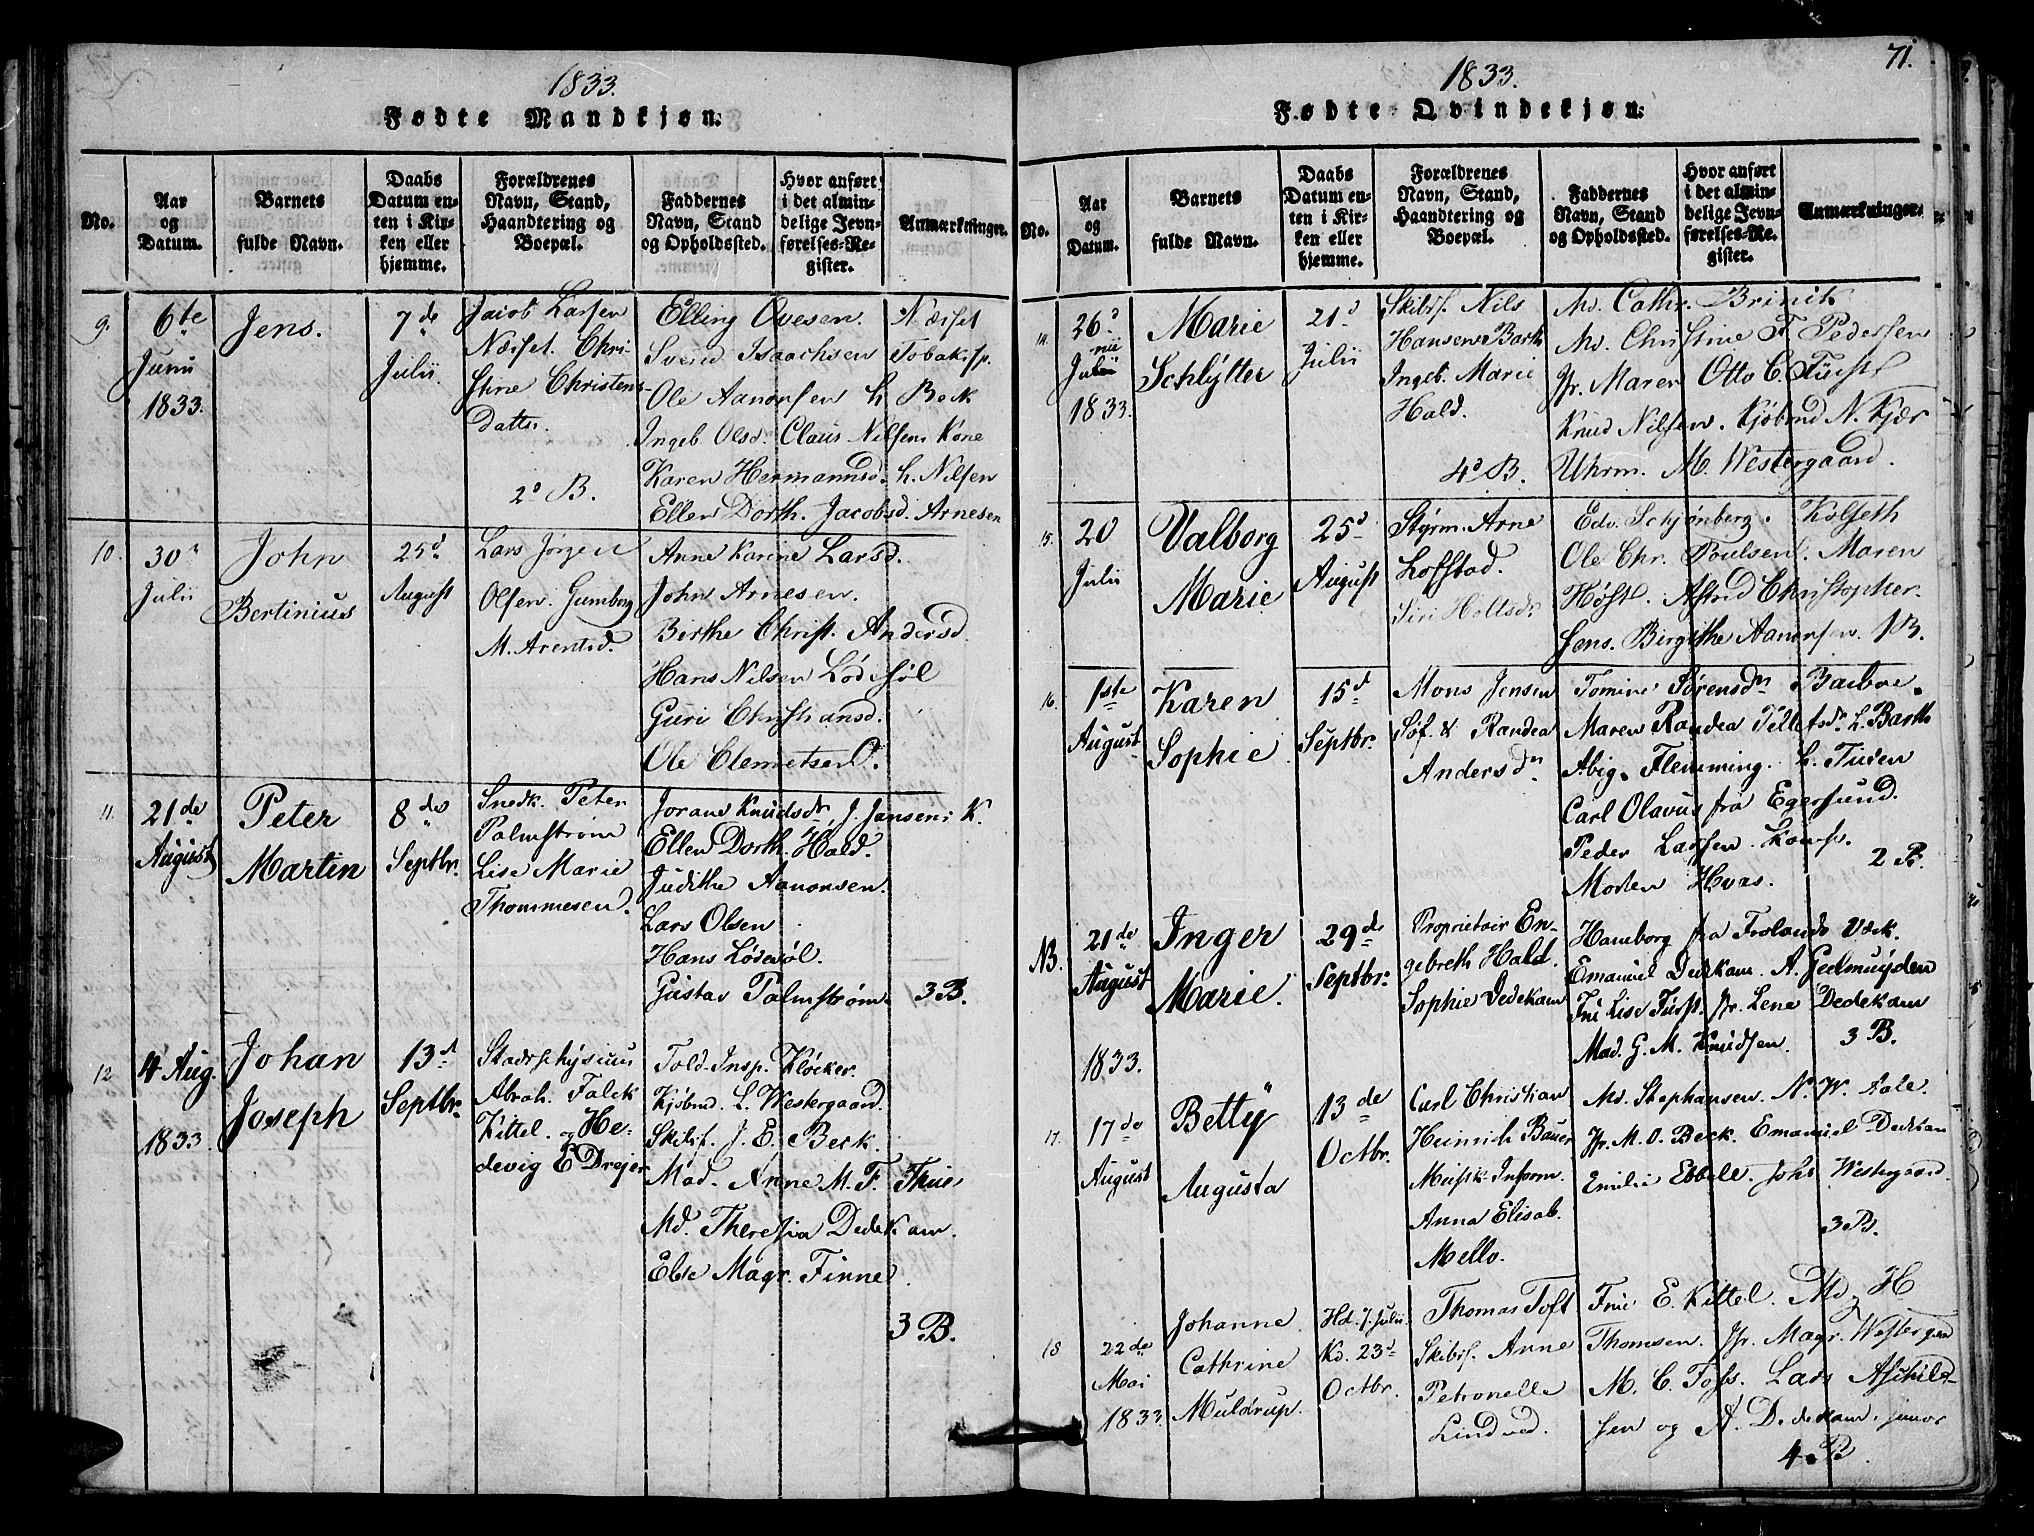 1833.
Fødte Mandkjøn.
No.
Aar og Datum.
Barnets fulde Navn.
Daabs Datum enten i Kirken eller hjemme.
Forældrenes Navn, Stand, Haandtering og Boepæl.
Faddernes Navn, Stand og Opholdssted.
Hvor anført i det almindelige Jevnførelses-Register.
Anmærkninger.
9.
6te
Junii
1833.
Jens.
7de
Julii
Jacob Larsen
Næsset. Chri-
stine Christens-
Datter.
2d B.
Elling Ovesen. Næsset
Svend Isaachsen Tobaksp.
Ole Aanonsen h. Beck
Ingeb. Olsd. Claus Nilsens Kone
Karen Hermannsd. h. Nilsen
Ellen Dorth. Jacobsd. Arnesen
10.
30
Julii
John
Bertinius
25d
August
Lars Jörgen
Olsen. Gunborg
M. Arentsd.
Anne Karine Larsd.
John Arnesen.
Birthe Christ. Andersd.
Hans Nilsen Lödesöl
Guri Christiansd.
Ole Clemetsen
11.
21de
August
Peter
Martin
8de
Septbr.
Snedk. Peter
Palmström
Lise Marie
Thommesen.
Joran Knudsdr. J. Jansens K.
Ellen Dorth. Hald.
Judithe Aanonsen.
Lars Olsen
Hans Lödesöl.
Gustav Palmström. 3 B.
12
4 Aug.
1833.
Johan
Joseph
13d
Septbr.
Stadsphysicus
Abrah. Falck
Kittel. og He-
devig E Drejer
Told-Insp. Klöcker.
Kjöbmd. L. Westergaard.
Skibsf. J. E. Beck.
Mad. Anne M. F. Thue
Md. Theresia Dedekam.
Else Magr. Finne.
3 B.
71.
1833.
Fødte Qvindekjøn.
No.
Aar og Datum.
Barnets fulde Navn.
Daabs Datum enten i Kirken eller hjemme.
Forældrenes Navn, Stand, Haandtering og Boepæl.
Faddernes Navn, Stand og Opholdssted.
Hvor anført i det almindelige Jevnførelses-Register.
Anmærkninger.
14.
26d
Julii
1833.
Marie
Schlytter
21d
Julii
Skibsf. Nils
Hansen Barth
Ingeb. Marie
Hald.
4d B.
Md. Cathr. Brinck
Md. Christine F. Pedersen
Jfr. Maren Otto C. Fürst
Knud Nilsen. Kjöbmd N. Kjær
Uhrm. M. Westergaard.
15.
20
Julii
Valborg
Marie
25d
August
Styrm. Arne
Loffstad.
Siri Holtsdr
Edv. Schjönberg. Kolseth
Ole Chr. Poulsen. Maren
Höst. Astrid Christopher-
sens. Birgithe Aanonsen. 1 B.
16.
1ste
August
Karen
Sophie
15d
Septbr.
Mons Jensen
Söf. & Randea
Andersdn
Tomine Sörensdn Barboe.
Maren Randea Tellefsdn L. Barth
Abig. Flemming. L. Tusen
Carl Olavus fra Egersund.
Peder Larsen.
Morten Hvas.
2 B.
NB.
21de
August
1833.
Inger
Marie.
29de
Septbr.
Proprietair En-
gebreth Hald.
Sophie Dedekam
Hamborg fra Frolands Værk.
Emanuel Dedekam. A. Gedmuyden
Fru Lise Fürst. Jfr. Lene Dedekam
Mad. G. M. Knudsen. 3 B.
17.
17de
August
Betty
Augusta
13de
Octbr.
Carl Christian
Heinrich Bauer
Musik-Inform.
Anna Elisab.
Mello.
Md. Stephansen. N. W. Aale.
Jfr. M. O. Beck. Emanuel Dedekam
Emilie Ebbell. Johs Westergaard.
3 B.
18
22de
Mai
1833.
Johanne
Cathrine
Muldrup.
Hd. 7. Julii
Kd. 23d
Octbr.
Thomas Toft
Skibsf. Anne
Petronelle
Lindved.
Frue E. Kittel. Md. H
Thomsen. Jfr. Magr. Westergard
M. C. Foss. Lars Aschild-
sen og A. Dedekam. junior
4. B.